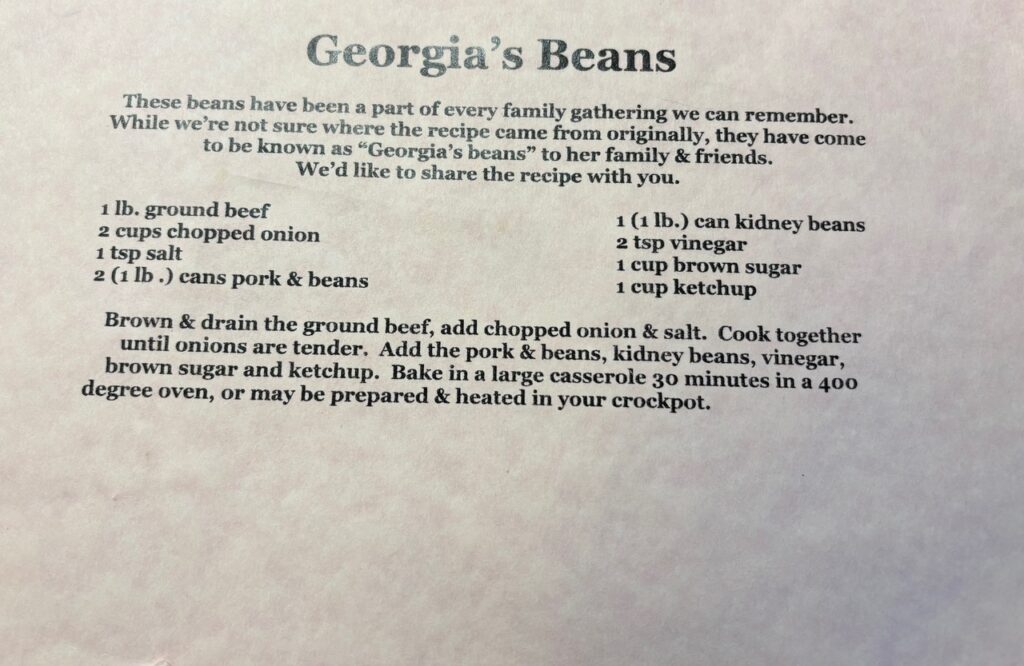 Georgia’s Beans
These beans have been a part of every family gathering we can remember.
While we’re not sure where the recipe came from originally, they have come
to be known as “Georgia’s beans” to her family & friends.
We’d like to share the recipe with you.
1 lb. ground beef
2 cups chopped onion
1 tsp salt
2 (1 lb .) cans pork & beans
1 (1 lb.) can kidney beans
2 tsp vinegar
1 cup brown sugar
1 cup ketchup
Brown & drain the ground beef, add chopped onion & salt.  Cook together
until onions are tender.  Add the pork & beans, kidney beans, vinegar,
brown sugar and ketchup.  Bake in a large casserole 30 minutes in a 400
degree oven, or may be prepared & heated in your crockpot.